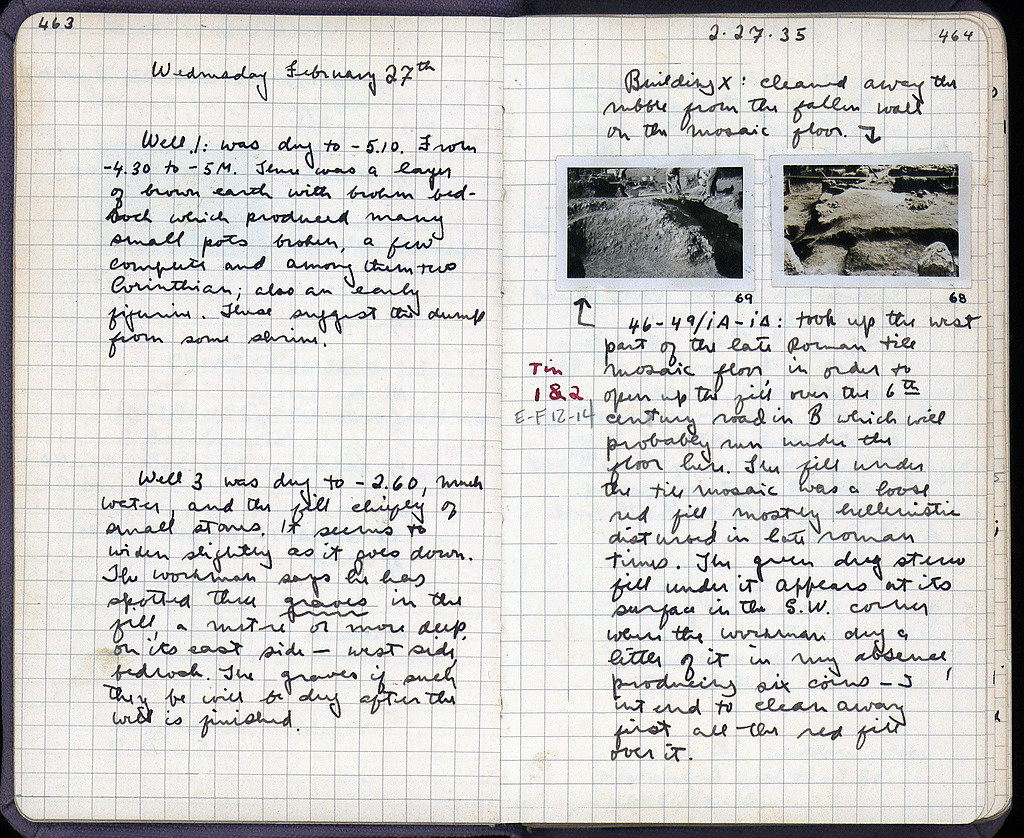 463
Wednesday February 27th
Well 1: was dug to -5.10. From
-4.30 to -5M. There was a layer
of brown earth with broken bed-
rock which produced many
small pots broken, a few
complete and among them two
Corinthian; also an early
figurine. These suggest the dump
from some shrine.
Well 3 was dug to -2.60, much
water, and the fill chiefly of
small stones. It seems to
widen slightly as it goes down.
The workman says he has
spotted three graves in the
fill, a metre or more deep,
on its east side — west side,
bedrock. The graves if such
they be will be dug after the
well is finished.
2.27.35
464
Building X: cleaned away the
rubble from the fallen wall
on the mosaic floor.
69
68
46-49/ΙΑ-ΙΔ: took up the west
part of the late Roman tile
mosaic floor in order to
open up the fill over the 6th
century road in B which will
probably run under the
floor here. The fill under
the tile mosaic was a loose
red fill, mostly hellenistic
disturbed in late roman
times. The green dug
fill under it appears at its
surface in the S.W. corner
where the workman dug a
little of it in my absence,
producing six coins — I
intend to clean away
first all the red fill
over it.
Tin
1 & 2
E-F 12-14